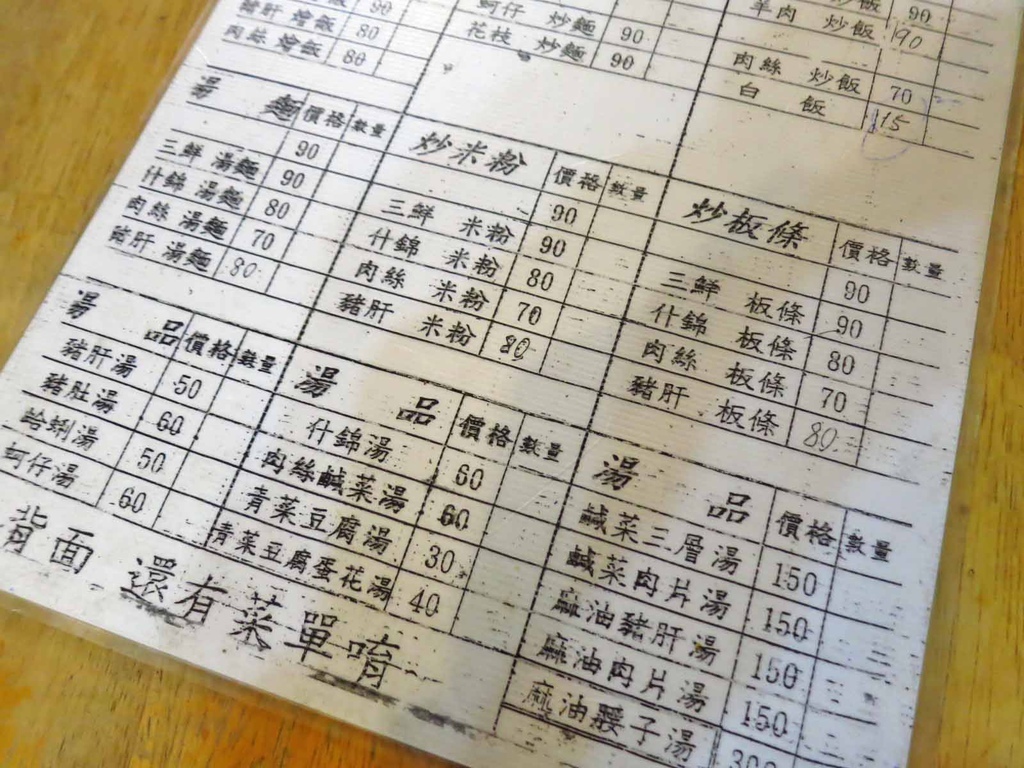 燴飯 90
豬肝 燴飯 80
肉絲 燴飯 80
蚵仔 炒麵 90
花枝 炒麵 90
炒飯 90
羊肉 炒飯 90
肉絲 炒飯 70
白 飯 15
湯 麵 價格 數量
90
三鮮 湯麵 90
什錦 湯麵 80
肉絲 湯麵 70
豬肝 湯麵 80
炒米粉 價格 數量
90
三鮮 米粉 90
什錦 米粉 80
肉絲 米粉 70
豬肝 米粉 80
炒板條 價格 數量
90
三鮮 板條 90
什錦 板條 80
肉絲 板條 70
豬肝 板條 80
湯 品 價格 數量
豬肝湯 50
豬肚湯 60
蛤蜊湯 50
蚵仔湯 60
湯 品 價格 數量
什錦湯 60
肉絲鹹菜湯 60
青菜豆腐湯 30
青菜豆腐蛋花湯 40
湯 品 價格 數量
鹹菜三層湯 150
鹹菜肉片湯 150
麻油豬肝湯 150
麻油肉片湯 150
麻油腰子湯
背面 還有菜單唷